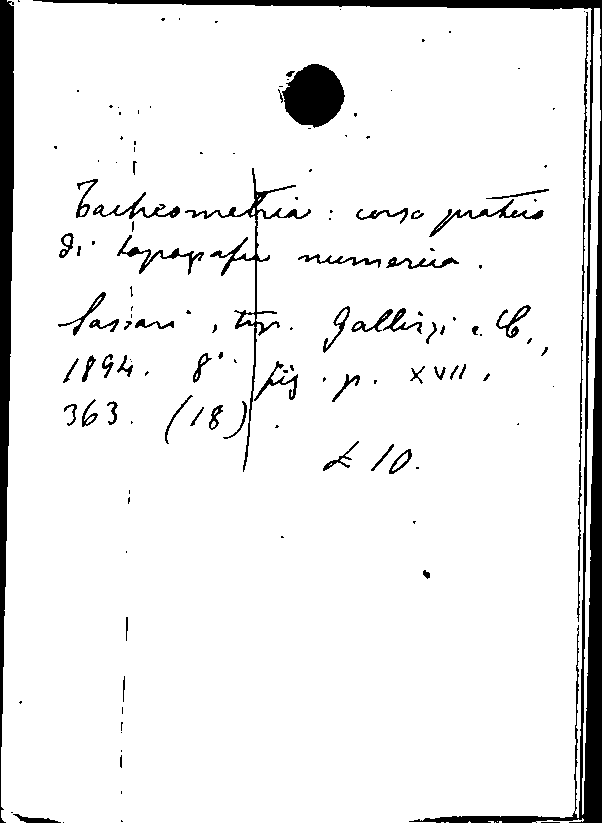 Tacheometria : corso pratico
di topografia numerica.
Sassari, tip. Gallizzi e C.,
1894. 8° fig. p. XVII,
363. (18).
£ 10.